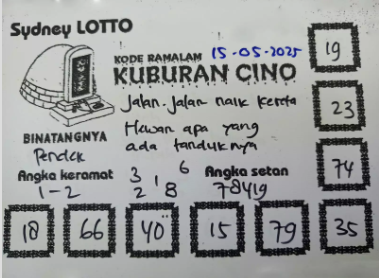 Sydney LOTTO
KODE RAMALAM 15-05-2025
KUBURAN CINO
Jalan-Jalan naik kereta
Hewan apa yang
ada tanduknya
BINATANGNYA
Pendek
Angka keramat
1-2
3 6
1
2 8
Angka setan
78419
19
23
74
18 66 40 15 79 35